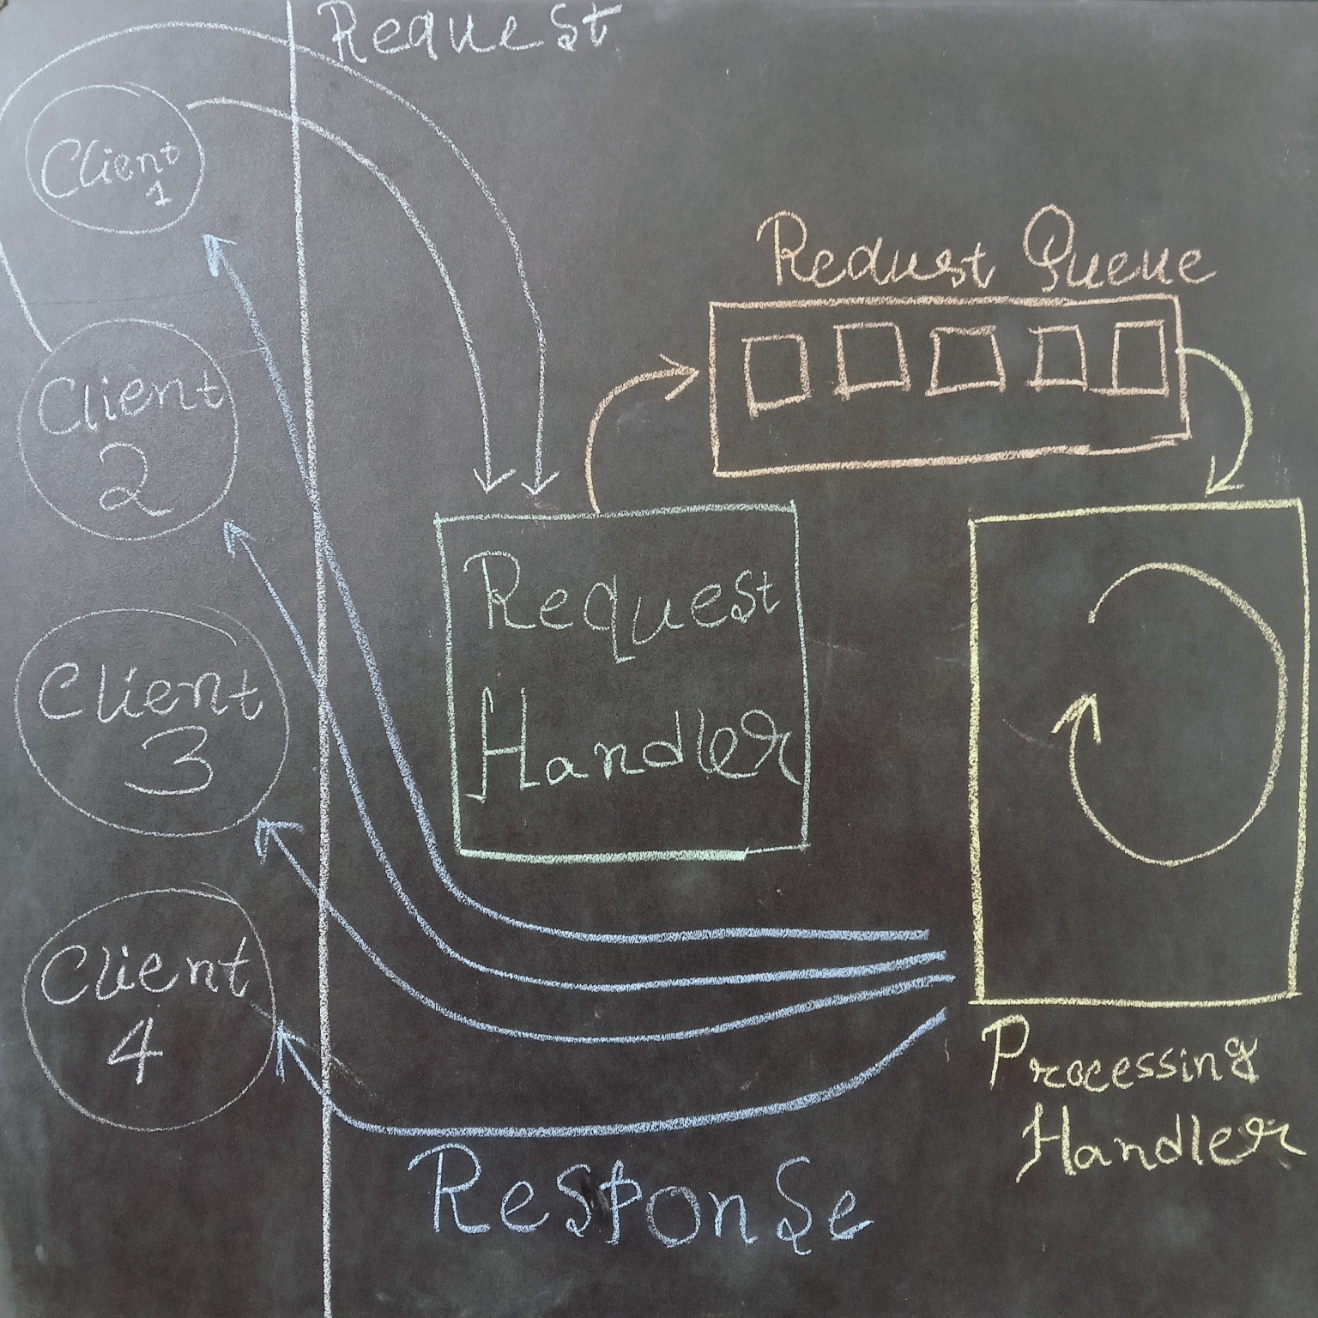 Request
Client
1
Client
2
Client
3
Client
4
Request
Handler
Redust Queue
Processing
Handler
Response